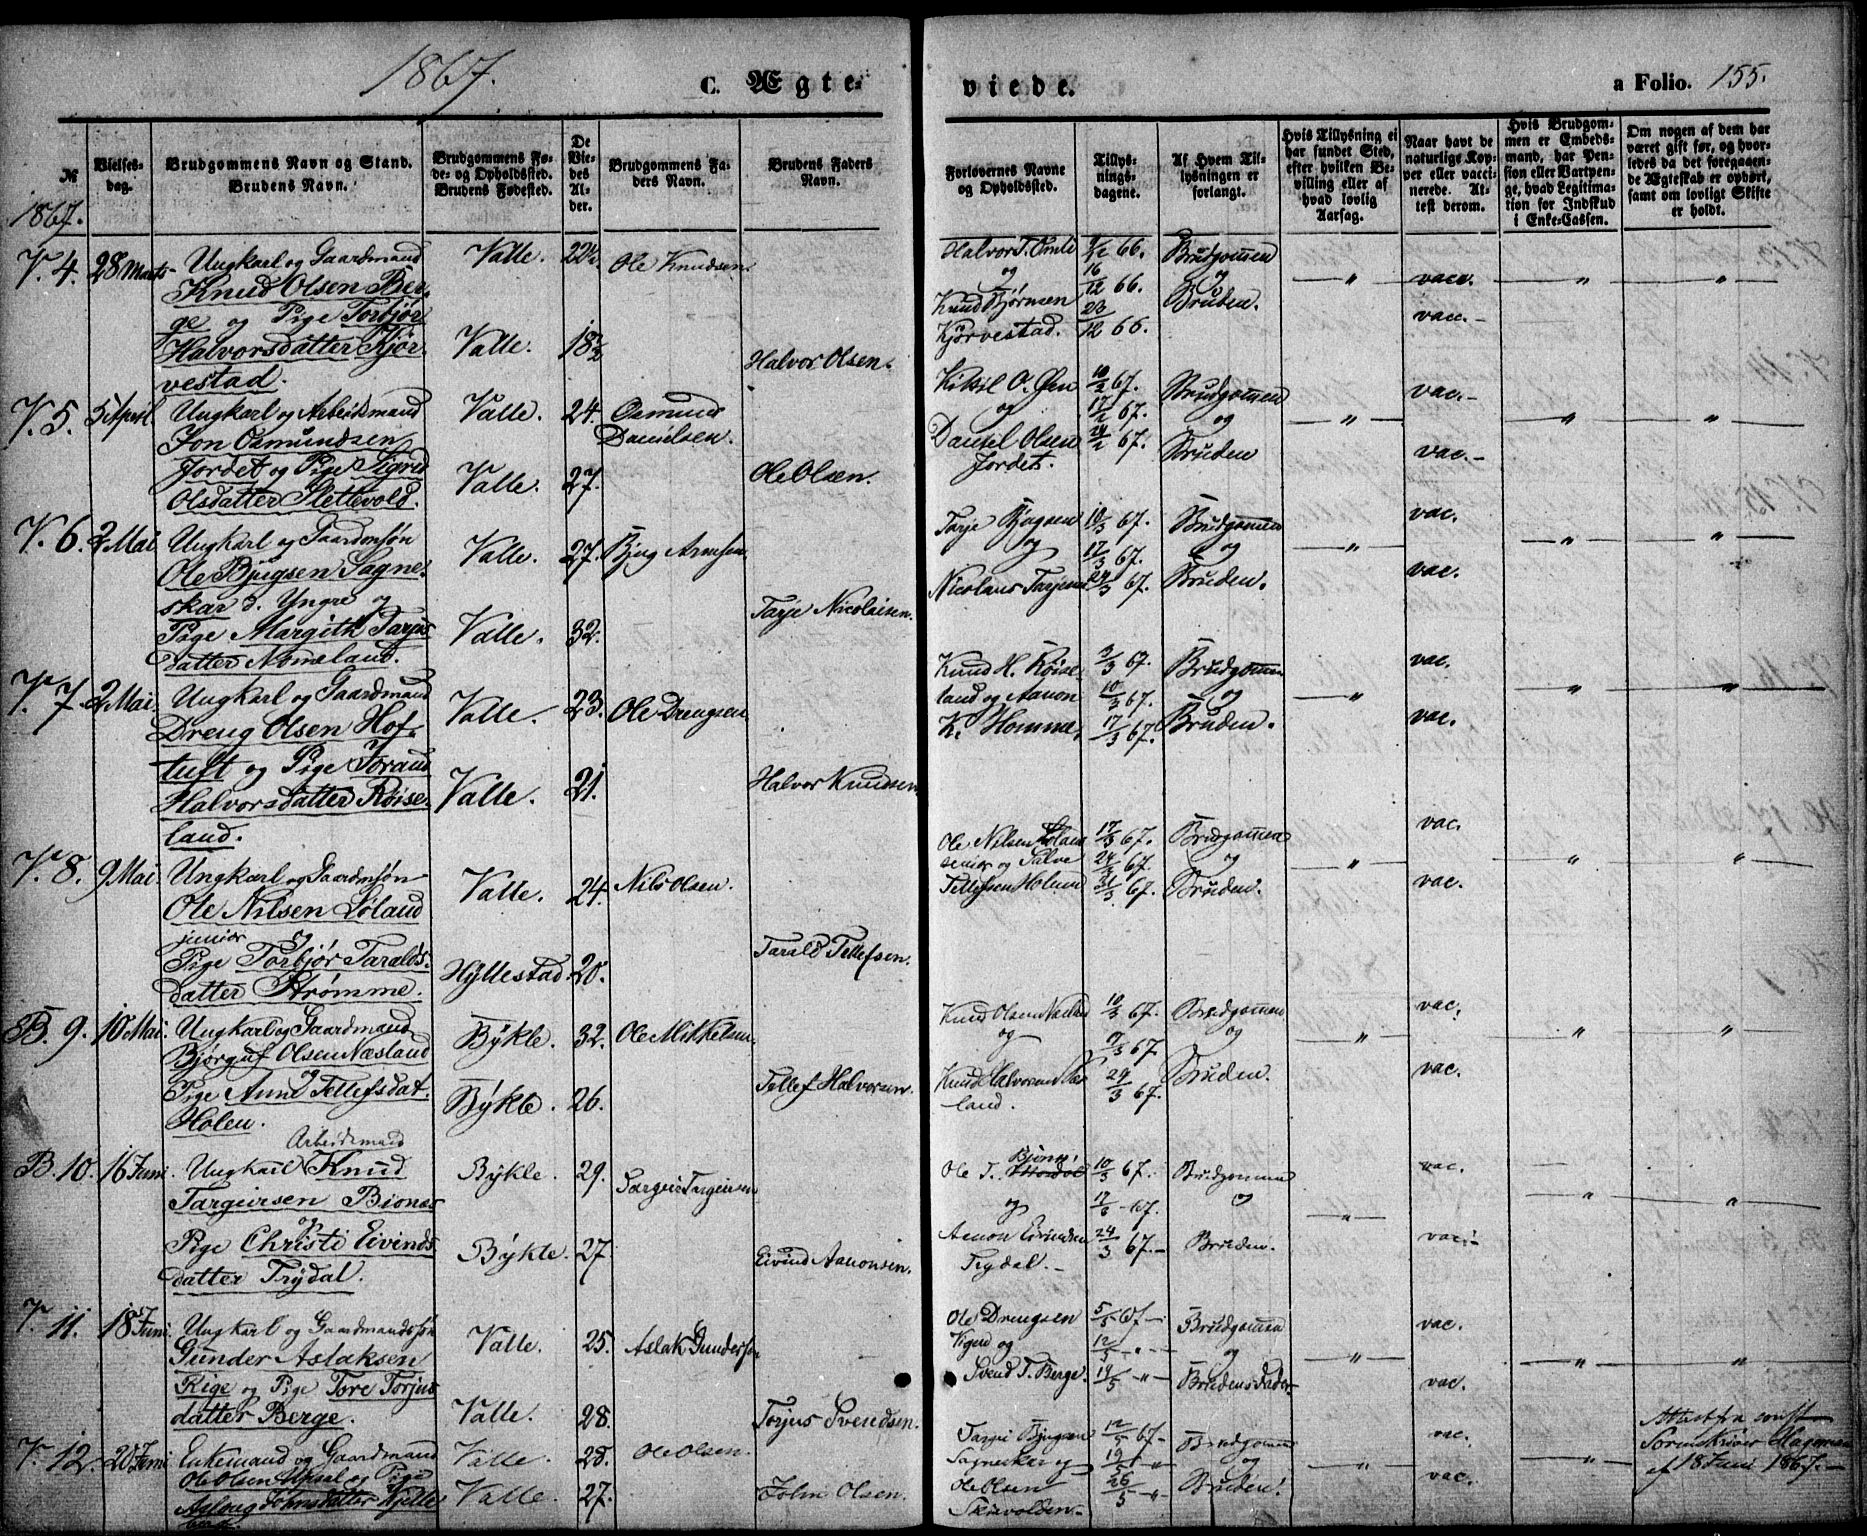 1867.
C. Ægte-
viede.
a Folio. 155.
№
Vielses-
dag.
Brudgommens Navn og Stand.
Brudens Navn.
Brudgommens Fø-
de- og Opholdssted.
Brudens Fødested.
De
Vie-
des
Al-
der.
Brudgommens Fa-
ders Navn.
Brudens Faders
Navn.
Forlovernes Navne
og Opholdssted.
Tillys-
nings-
dagene.
Af Hvem Til-
lysningen er
forlangt.
Hvis Tillysning ei
har fundet Sted,
efter hvilken Be-
villing eller af
hvad lovlig
Aarsag.
Naar havt de
naturlige Kop-
per eller vacci-
nerede. At-
test derom.
Hvis Brudgom-
men er Embeds-
mand, har Pen-
sion eller Vartpen-
ge, hvad Legitima-
tion for Indskud
i Enke-Cassen.
Om nogen af dem har
været gift før, og hvor-
ledes da det foregaaen-
de Ægteskab er ophørt,
samt om lovligt Skifte
er holdt.
1867.
V. 4. 28 Marts
Ungkarl og Gaardmand
Knud Olsen Ber-
ge og Pige Torbjør
Halvorsdatter Kjør-
vestad.
Valle.
Valle.
18½
Ole Knudsen.
Halvor Olsen.
Halvor T. Omli
og
Knud Bjørnsen
Kjørvestad.
9/12 66.
16/12 66.
23/12 66.
Brudgommen
og
Bruden.
vacc.
vacc.
V. 5. 5 April.
Ungkarl og Arbeidsmand
Jon Osmundsen
Jordet og Pige Sigrid
Olsdatter Flettevold.
Valle. 24.
Valle. 27.
Osmund
Danielsen.
Ole Olsen.
og
Daniel Olsen
Jordet.
10/2 67.
17/2 67.
24/2 67.
Brudgommen
og
Bruden
vac.
vac.
V. 6. 2 Mai
Ungkarl og Gaardmsøn
Ole Bjugsen Sagne-
skar d. Yngre og
Pige Margith Tarjus
datter Nomeland.
Valle. 27.
Valle. 32.
Bjug Arnesen
Tarje Nicolaisen.
Tarje Bjugsen
og
Nicolaus Tarjesen
10/3 67.
17/3 67.
24/3 67.
Brudgommen
og
Bruden.
vac.
vac.
V. 7. 2 Mai.
Ungkarl og Gaardmand
Dreng Olsen Hof-
tuft og Pige Joraud
Halvorsdatter Røise-
land.
Valle. 23.
Valle. 21.
Ole Drengsen.
Halvor Knudsen.
Knud H. Røise-
land og Aanon
K. Homme,
3/3 67.
10/3 67.
17/3 67.
Brudgommen
og
Bruden.
vac.
vac.
V. 8. 9 Mai.
Ungkarl og Gaardmsøn
Ole Nilsen Løland
junior og
Pige Torbjør Taralds-
datter Strømme.
Valle. 24.
Hyllestad. 20.
Nils Olsen.
Tarald Tellefsen.
Ole Nilsen Løland
senior og Salve
Tellefsen Holum
17/3 67.
24/3 67.
31/3 67.
Brudgommen
og
Bruden.
vac.
vac.
B. 9. 10 Mai.
Ungkarl og Gaardmand
Bjørguf Olsen Næsland
og
Pige Anne Tellefsdat.
Holen.
Bykle. 32.
Bykle. 26.
Ole Mikkelsen.
Tellef Halvorsen.
Knud Olsen Næsland
og
Knud Halvorsen Næs
land.
10/3 67.
24/3 67.
Brudgommen
og
Bruden.
vac.
vac.
B. 10. 16 Juni.
Arbeidsmand
Ungkarl Knud
Targeirsen Bjonæs
og
Pige Christi Eivinds
datter Trydal.
Bykle. 29.
Bykle. 27
Targeir Targeirsen
Eivind Aanonsen.
Ole T.
og
Aanon Eivindsen
Trydal.
10/3 67.
24/3 67.
Brudgommen
og
Bruden.
vac.
vac.
V. 11. 18 Juni.
Ungkarl og Gaardmandssøn
Gunder Aslaksen
Rige og Pige Tore Torjus
datter Berge.
Valle. 25.
Valle. 28.
Aslak Gundersen
Torjus Svendsen.
Ole Drengsen
Vigerd og
Svend T. Berge.
5/5 67
12/5 "
19/5 "
Brudgommen
og
Brudens Fader
vac.
vac.
V. 12. 20 Juni
Enkemand og Gaardmand
Ole Olsen Upsal og Pige
Aslaug Johnsdatter Kjelle
berg.
Valle. 28.
Valle. 27.
Ole Olsen.
John Olsen.
Tarje Bjugsen
Sagneskar og
Ole Olsen
12/5 67
19/5 "
26/5 "
Brudgommen
og
Bruden.
vac.
vac.
Attest fra const
Sorenskriver Hagemann
af 18 Juni 1867.